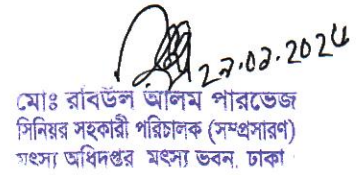 মোঃ রবিউল আলম পারভেজ
সিনিয়র সহকারী পরিচালক (সম্প্রসারণ)
মৎস্য অধিদপ্তর মৎস্য ভবন, ঢাকা